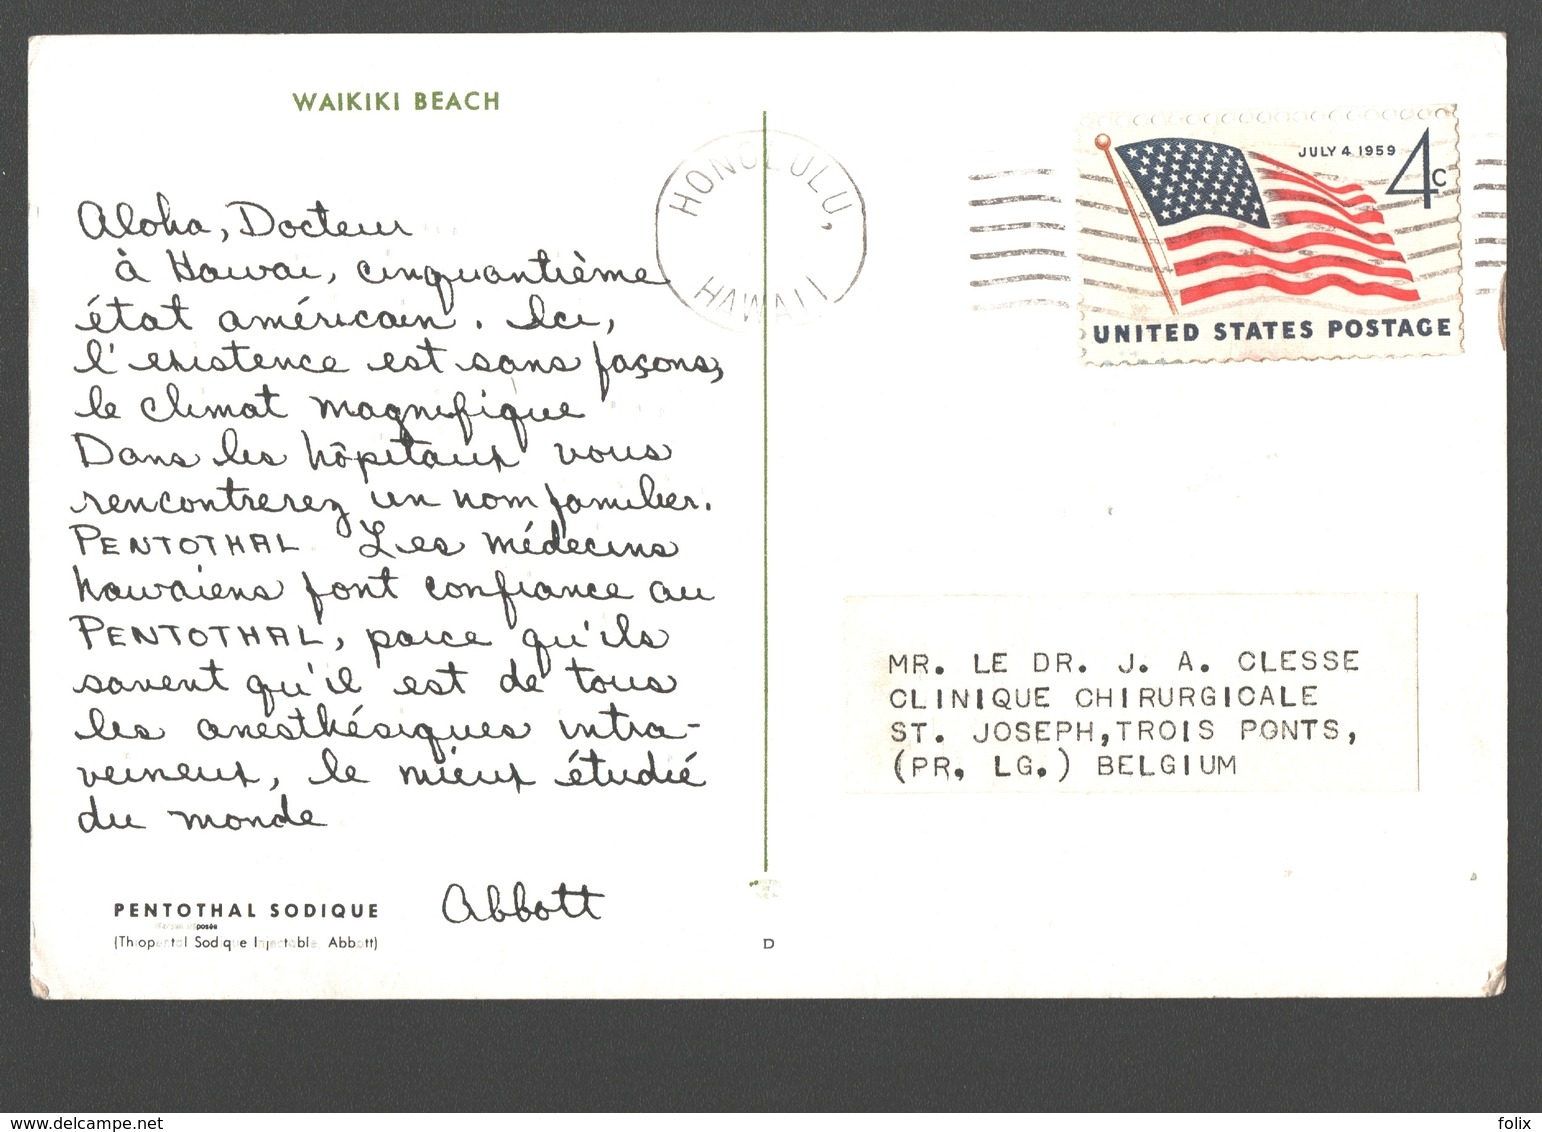 WAIKIKI BEACH
Aloha, Docteur
à Hawai, cinquantième
état américain. Ici,
l'existence est sans façons,
le climat magnifique
Dans les hôpitaux vous
rencontrerez un nom familier.
PENTOTHAL Les médecins
hawaiens font confiance au
PENTOTHAL, parce qu'ils
savent qu'il est de tous
les anesthésiques intra-
veineux, le mieux étudié
du monde
Abbott
PENTOTHAL SODIQUE
posée
(Thiopental Sodique Injectable, Abbott)
D
HONOLULU,
HAWAII
JULY 4 1959
4c
UNITED STATES POSTAGE
MR. LE DR. J. A. CLESSE
CLINIQUE CHIRURGICALE
ST. JOSEPH,TROIS PONTS,
(PR, LG.) BELGIUM
www.delcampe.net
folix